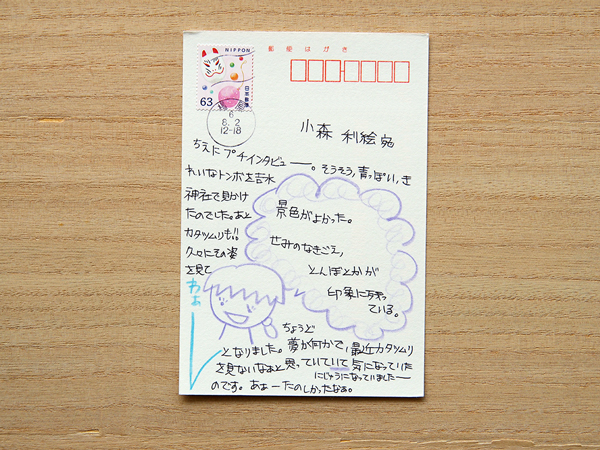 NIPPON
63
日本郵便
郵便はがき
6
8.2
12-18
小森 利絵 宛
ちえにプチインタビュー。そうそう、青っぽい、き
れいなトンボを吉水
神社で見かけ
たのでした。あと
カタツムリも!!
久々にその姿
を見て
わぁ
景色がよかった。
せみのなきごえ、
とんぼとかが
印象に残っ
ている。
ちょうど
となりました。夢か何かで、最近カタツムリ
を見ないなぁと思っていていて気になっていた
にじゅうになっていました
のです。あぁーたのしかったなぁ。